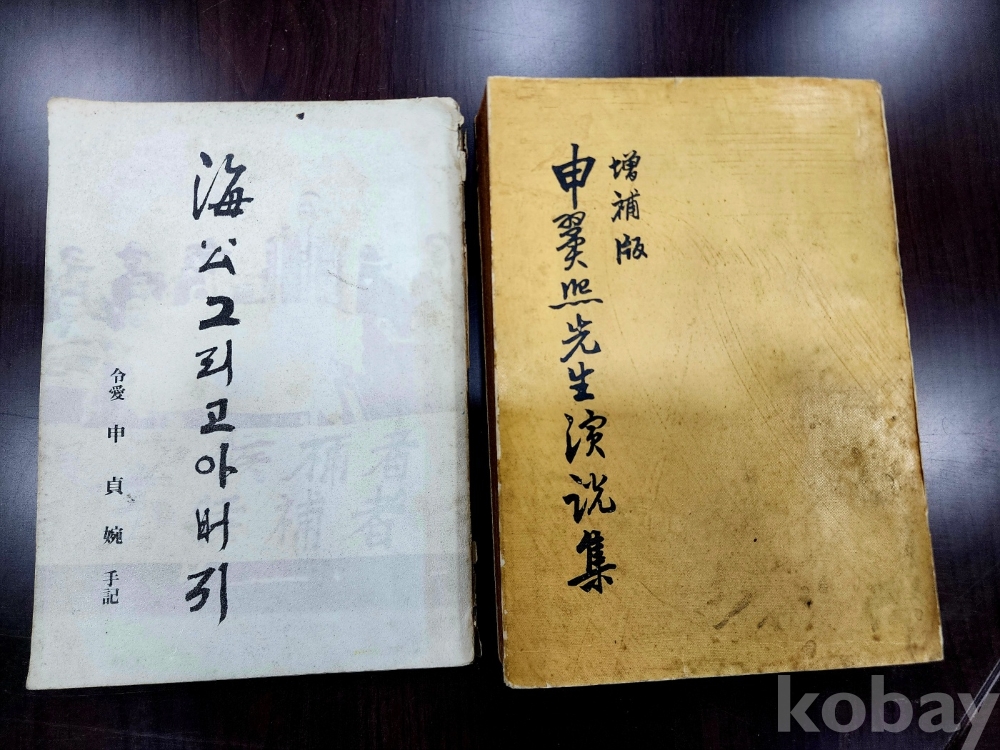 海公그리고아버지
令愛 申貞婉 手記
增補版
申翼熙先生演說集
kobay